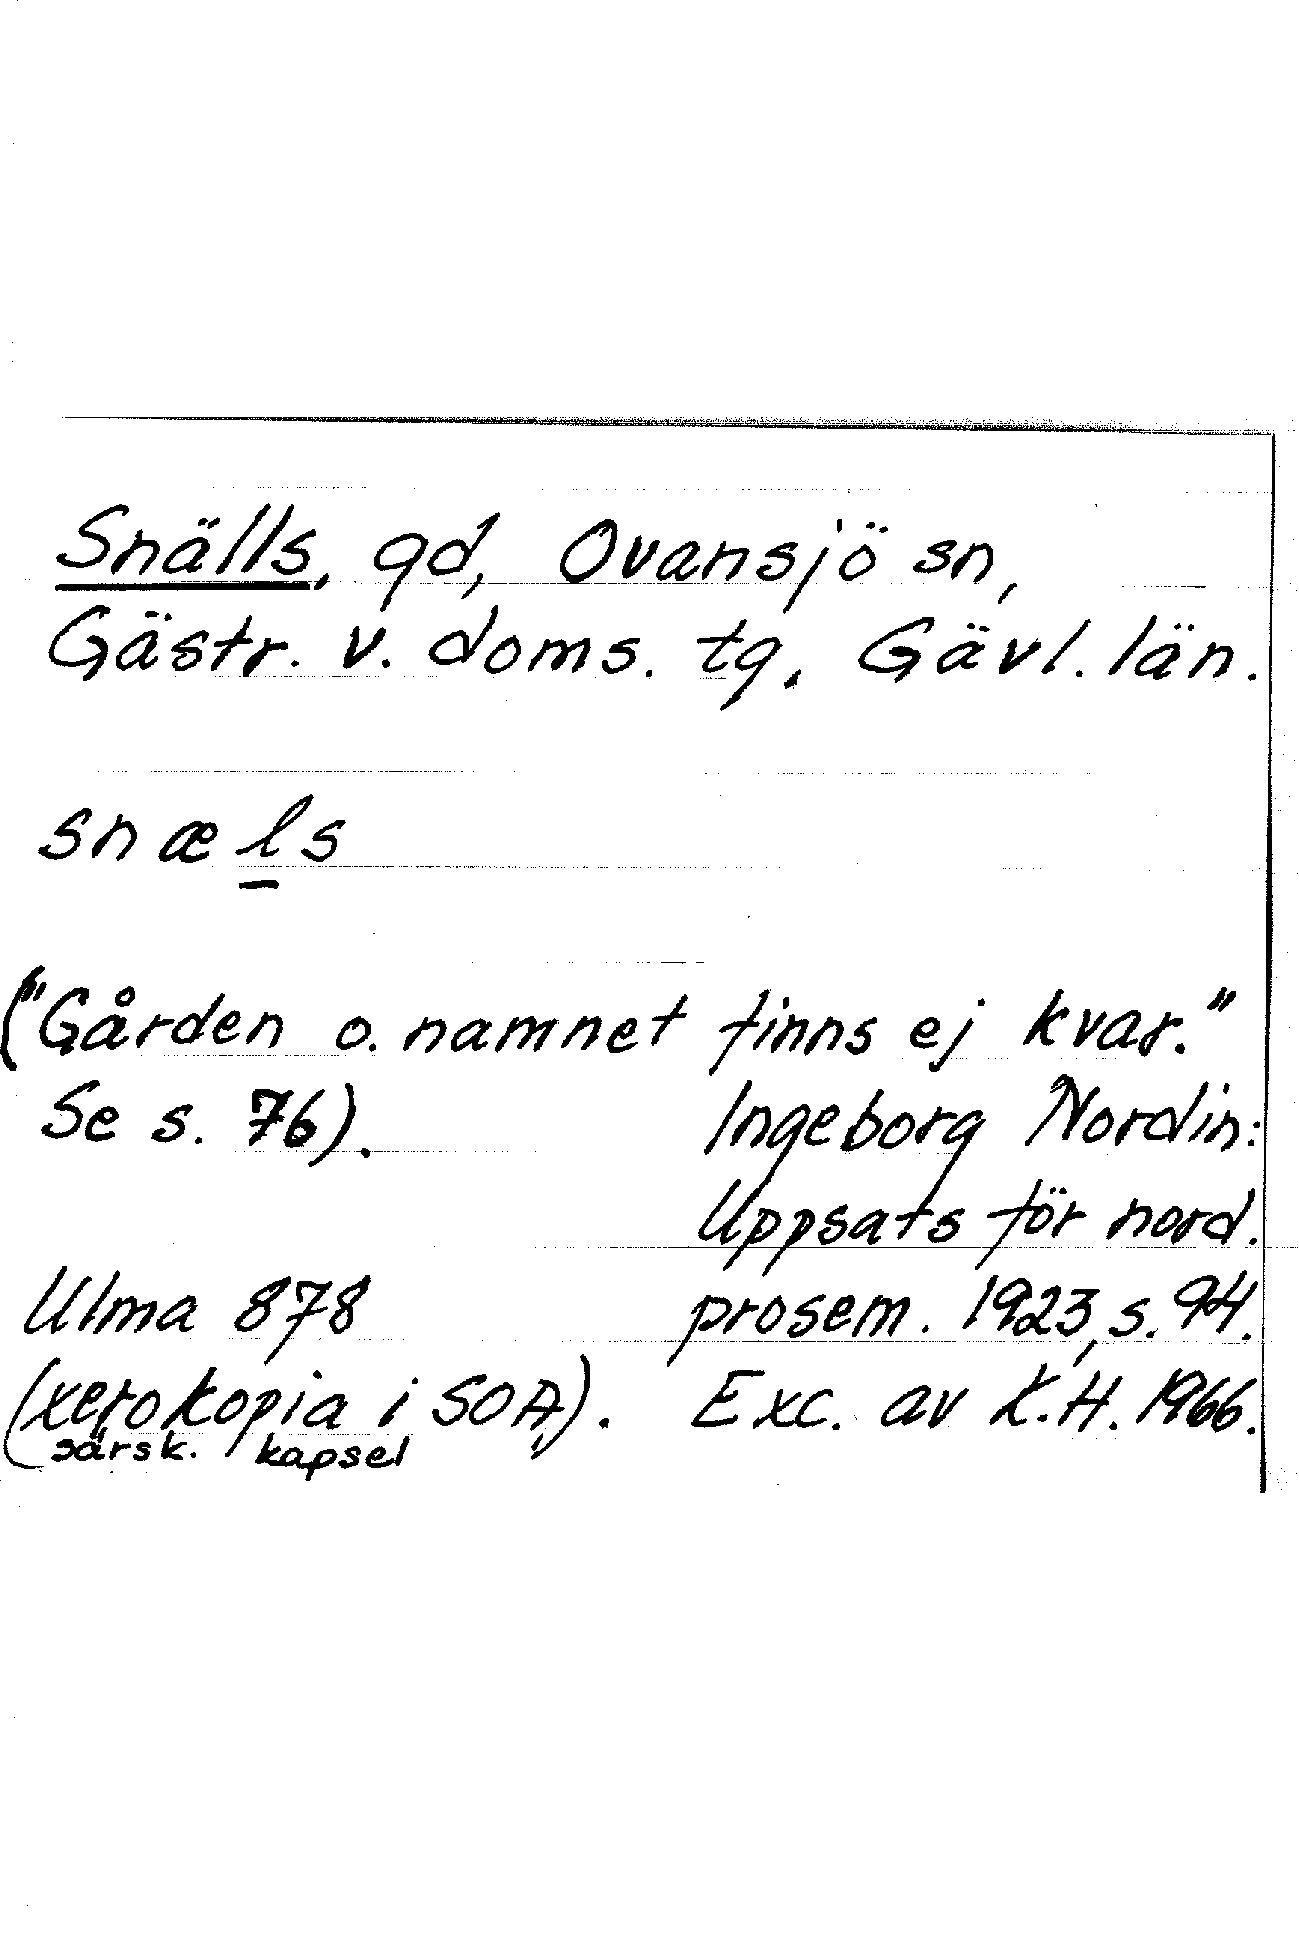 Snälls, gd, Ovansjö sn,
Gästr. v. doms. tg, Gävl. län.
snæls
("Gården o. namnet finns ej kvar."
Se s. 76).
Ingeborg Nordin:
Uppsats för nord.
prosem. 1923, s. 94.
Exc. av K.H. 1966.
Ulma 878
(xerokopia i SOA,).
särsk. kapsel